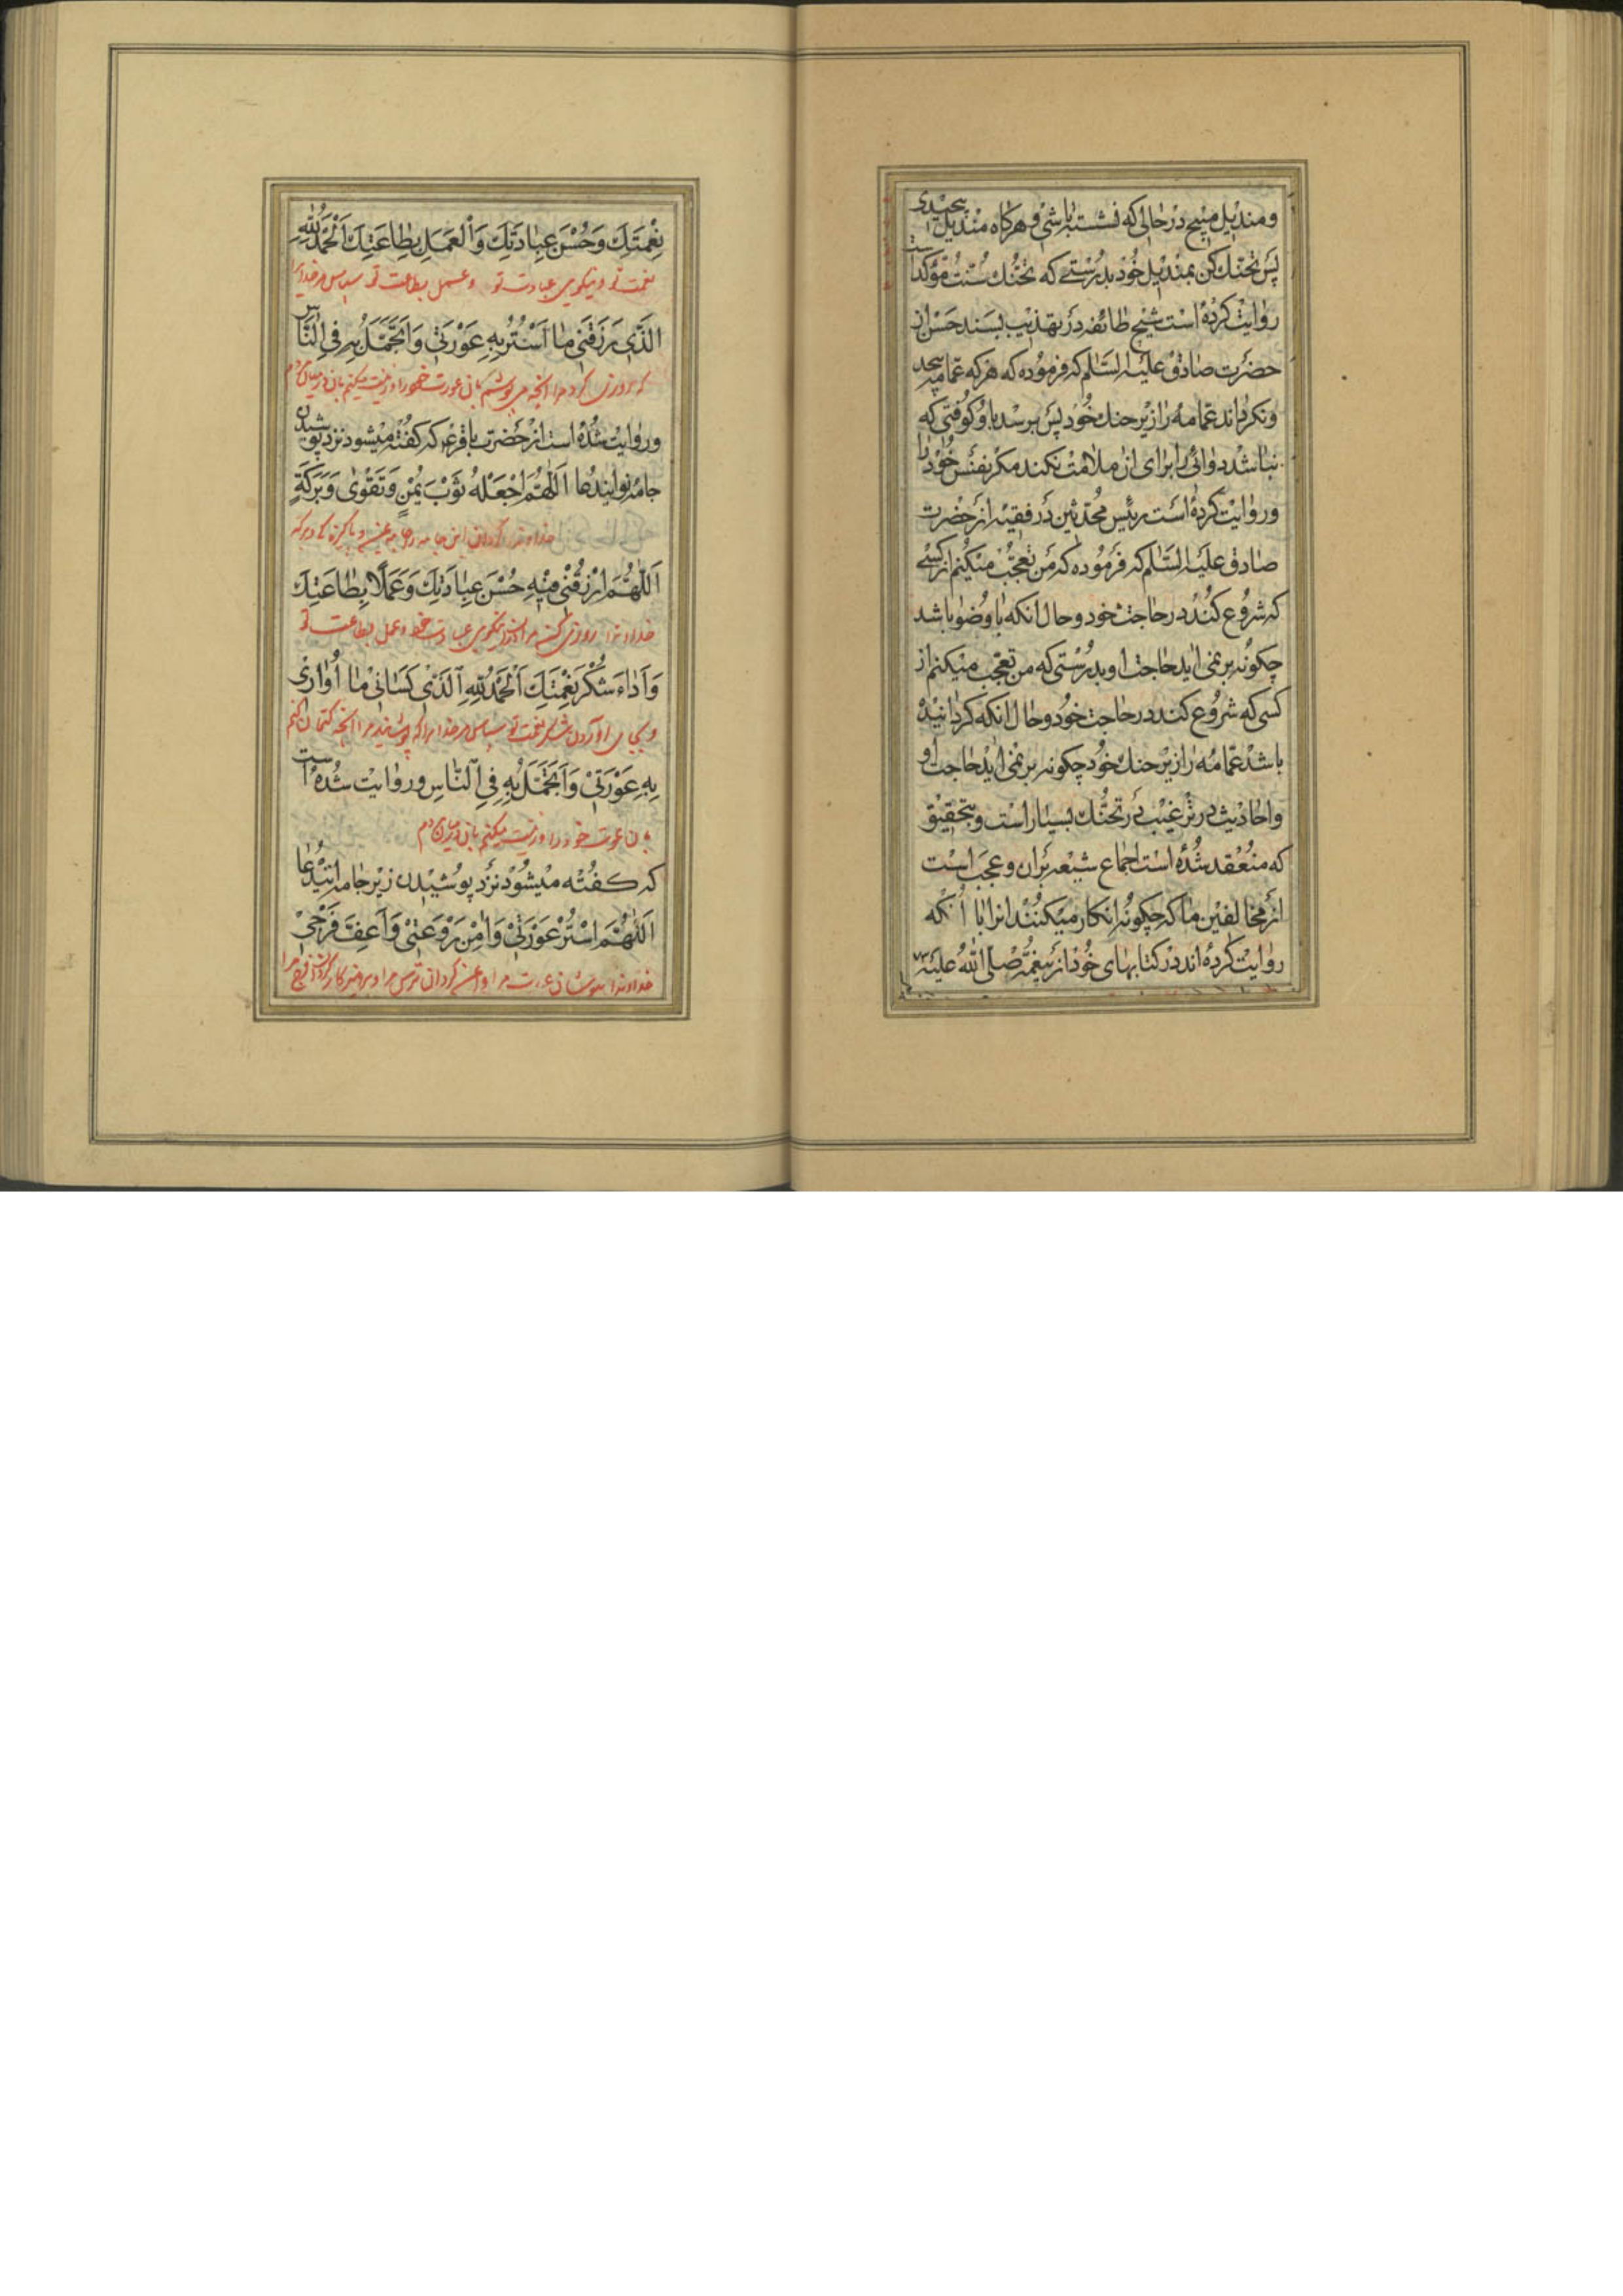 ومندیل مپیچ در حالی که نشسته باشی و هرکاه مندیل پیچیدی
پس تحنک کن بمندیل خود بدرستی که تحنک سنت مؤکد است
روایت کرده است شیخ طائفه در تهذیب بسند حسن از
حضرت صادق علیه السلام که فرموده که هر که عمامه پیچد
ونکرداند عمامه را زیر حنک خود پس برسد باو کوفتی که
نباشد دوائی را برای ان ملامت نکند مکر نفس خود را
وروایت کرده است رئیس محدثین در فقیه از حضرت
صادق علیه السلام که فرموده که من تعجب میکنم از کسی
که شروع کند در حاجت خود وحال انکه با وضو باشد
چکونه بر نمی اید حاجت او وبدرستی که من تعجب میکنم از
کسی که شروع کند در حاجت خود وحال انکه کردانیده
باشد عمامه را زیر حنک خود چکونه بر نمی اید حاجت او
واحادیث در ترغیب در تحنک بسیار است وبتحقیق
که منعقد شده است اجماع شیعه بران وعجب است
از مخالفین ما که چکونه انکار میکنند انرا با انکه
روایت کرده اند در کتابهای خود از پیغمبر صلی الله علیه
نِعْمَتِكَ وَحُسْنَ عِبادَتِكَ وَالْعَمَلِ بِطاعَتِكَ اَلْحَمْدُ لِلّهِ
نعمت تو ونیکویی عبادت تو وعمل بطاعت تو سپاس مر خدایرا
الَّذی رَزَقَنی ما اَسْتُرُ بِهِ عَوْرَتی وَاَتَجَمَّلُ بِهِ فِی النّاسِ
که روزی کرد مرا انچه می پوشم بان عورت خود را وزینت میکنم بان در میان مردم
وروایت شده است از حضرت باقر ع که کفته میشود نزد پوشیدن
جامه نو ایندعا اَللّهُمَّ اجْعَلْهُ ثَوْبَ یُمْنٍ وَتَقْوی وَبَرَكَةٍ
خداوندا بکردان این جامه را جامه وپاکیزکی وبرکه
اَللّهُمَّ ارْزُقْنی فیهِ حُسْنَ عِبادَتِكَ وَعَمَلاً بِطاعَتِكَ
خداوندا روزی کن مرا نیکویی عبادت خود وعمل بطاعت تو
وَاَداءَ شُكْرِ نِعْمَتِكَ اَلْحَمْدُ لِلّهِ الَّذی كَسانی ما اُواری
وبجای اوردن شکر نعمت تو سپاس مر خدایرا که پوشانید مرا انچه کتمان کنم
بِهِ عَوْرَتی وَاَتَجَمَّلُ بِهِ فِی النّاسِ وروایت شده است
بان عورت خود را وزینت میکنم بان در میان مردم
که کفته میشود نزد پوشیدن زیر جامه ایندعا
اَللّهُمَّ اسْتُرْ عَوْرَتی وَامِنْ رَوْعَتی وَاَعِفَّ فَرْجی
خداوندا بپوشان عورت مرا وایمن کردان ترس مرا وپرهیزکار کردان فرج مرا